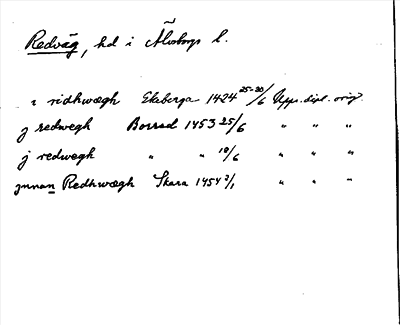 Redväg, hd i Älvsborgs l.
i ridhwægh Ekaberga 1424 25-30/6 Upps. dipl. orig.
j redwegh Borrud 1453 25/6 " " "
j redwægh " " 10/6 " " "
jnnan Redhwægh Skara 1454 7/1 " " "